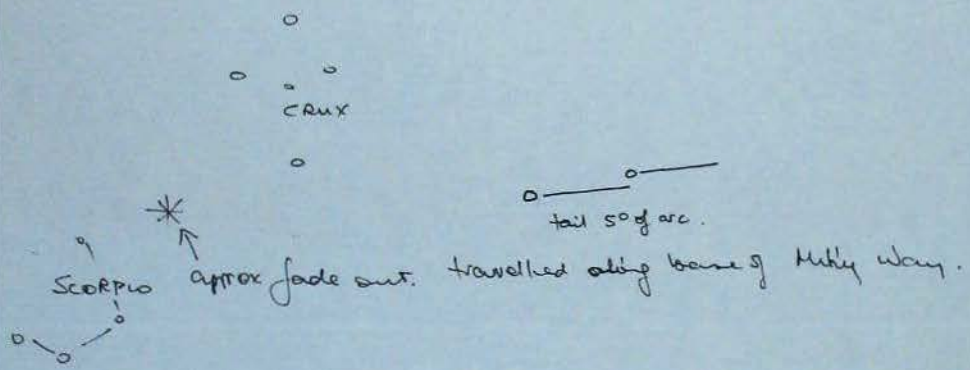 CRUX
tail 5° of arc.
SCORPIO approx fade out. travelled along base of Milky Way.